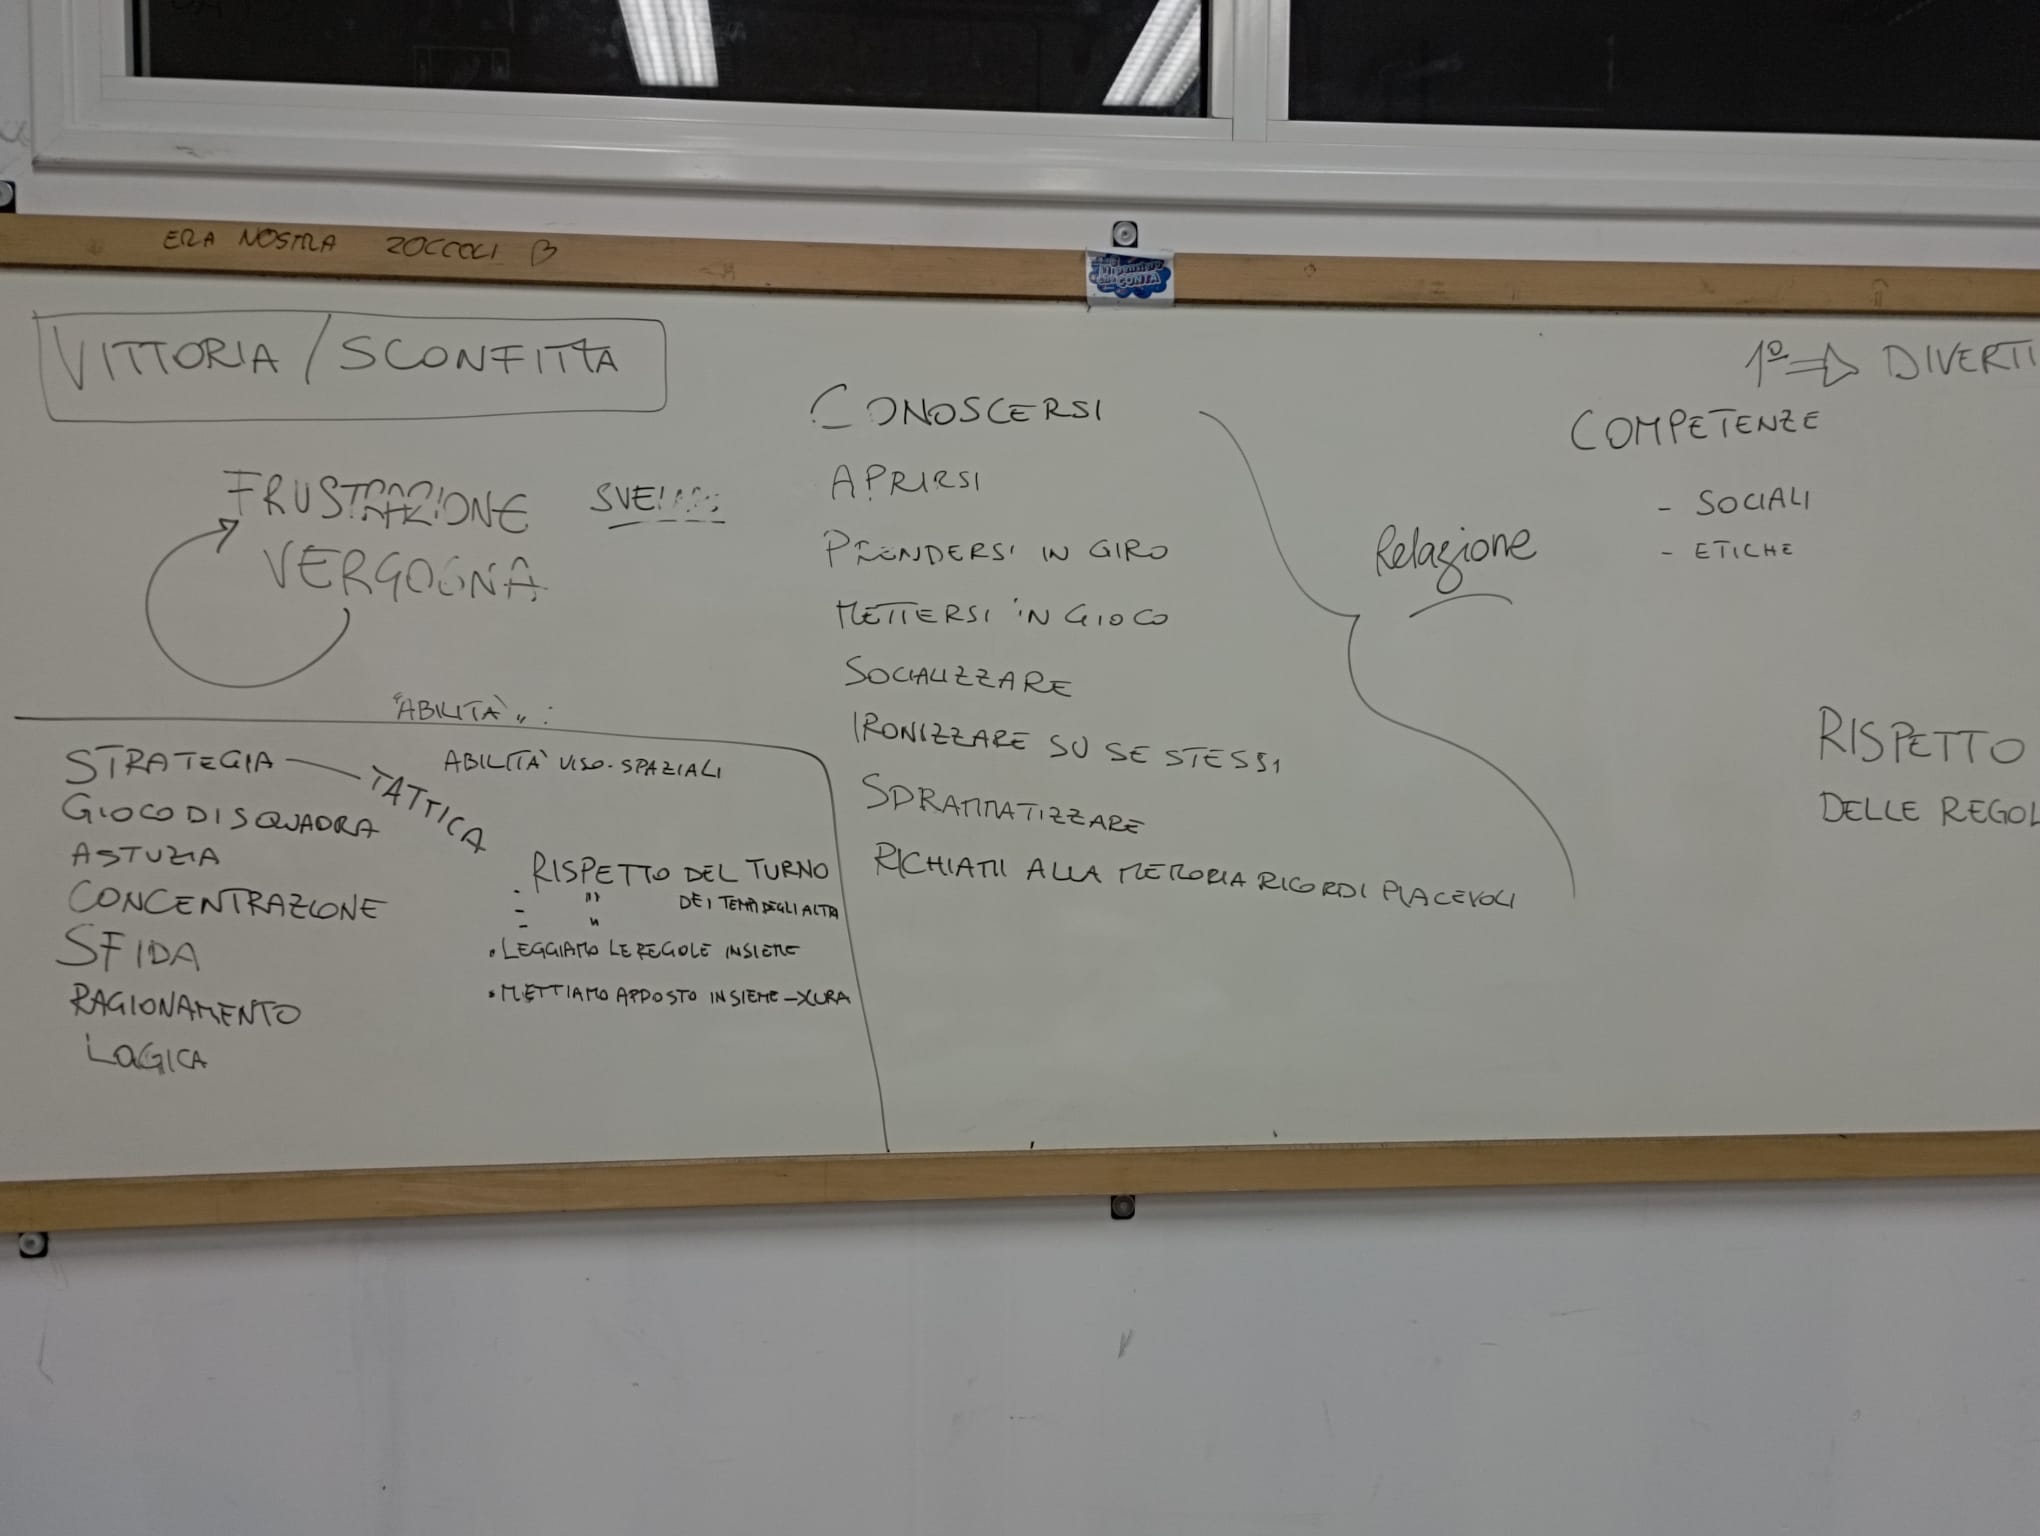 ERA NOSTRA ZOCCOLI B
CONTA
VITTORIA / SCONFITTA
FRUSTRAZIONE
VERGOGNA
"ABILITÀ" :
STRATEGIA
TATTICA
GIOCO DI SQUADRA
ASTUZIA
CONCENTRAZIONE
SFIDA
RAGIONAMENTO
LOGICA
ABILITÀ VISO-SPAZIALI
- RISPETTO DEL TURNO
- " DEI TEMPI DEGLI ALTRI
- "
• LEGGIAMO LE REGOLE INSIEME
• METTIAMO APPOSTO INSIEME - XURA
CONOSCERSI
APRIRSI
PRENDERSI IN GIRO
METTERSI IN GIOCO
SOCIALIZZARE
IRONIZZARE SU SE STESSI
SDRAMMATIZZARE
RICHIAMI ALLA MEMORIA RICORDI PIACEVOLI
Relazione
1º ⇒ DIVERTI
COMPETENZE
- SOCIALI
- ETICHE
RISPETTO
DELLE REGOL